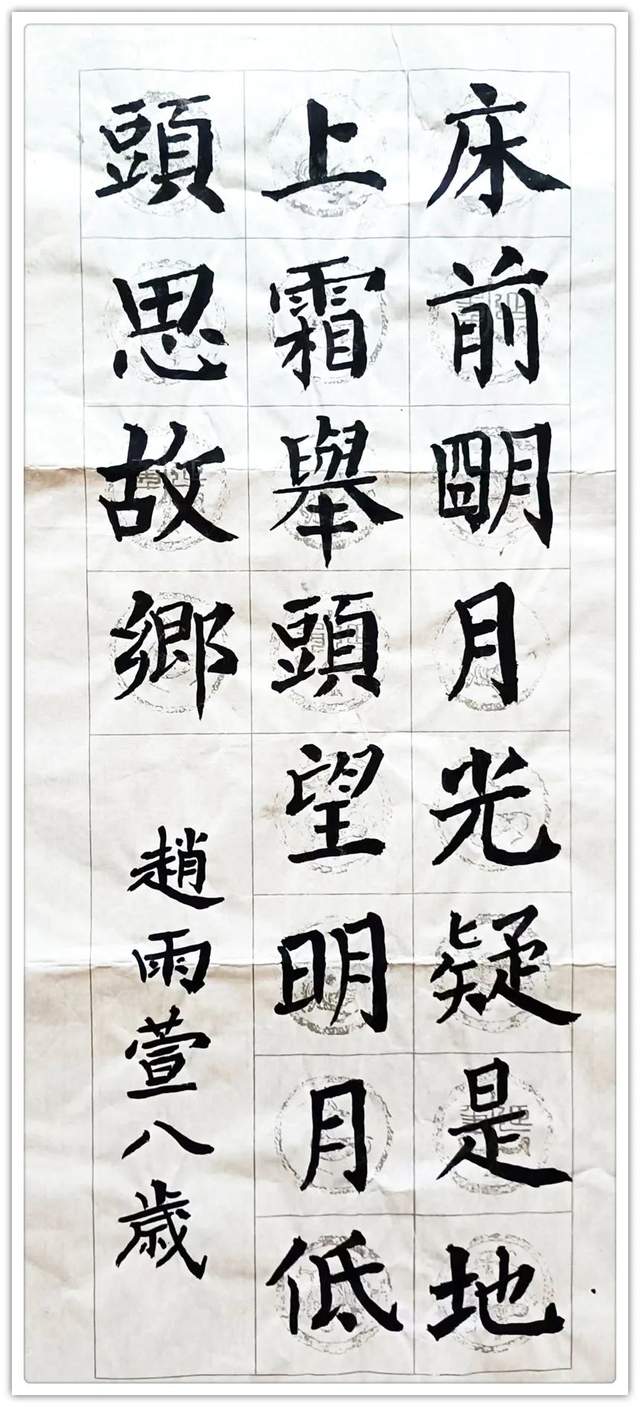 床前朙月光疑是地
上霜舉頭望明月低
頭思故鄉
趙雨萱八歲